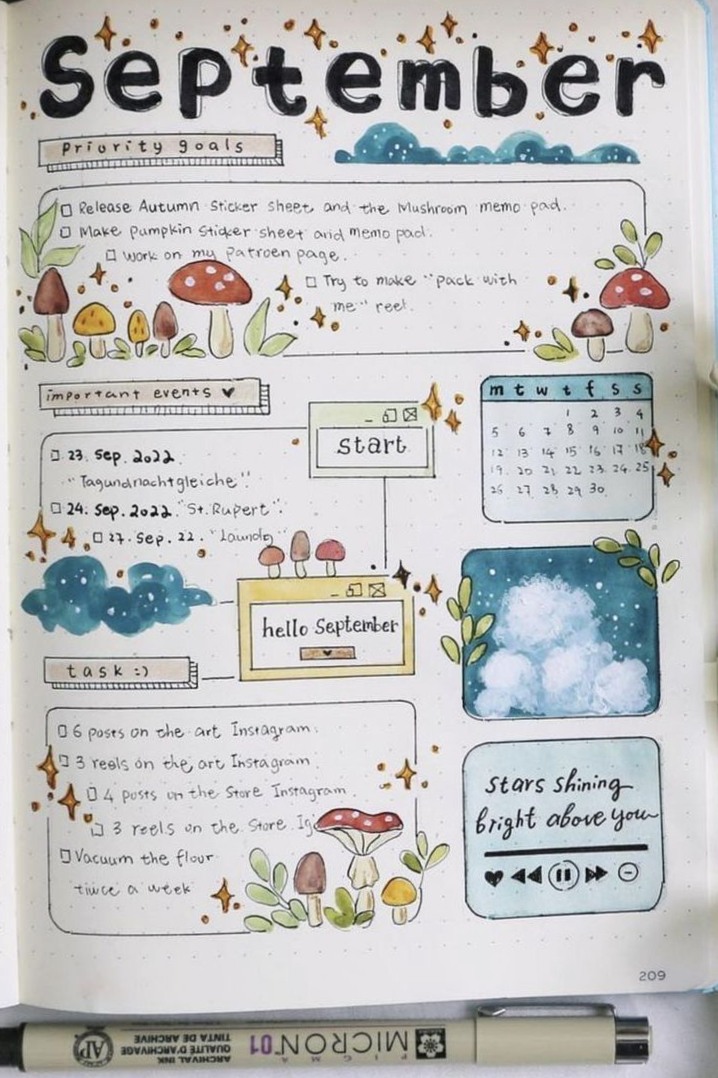 September
Priority goals
Release Autumn Sticker sheet and the Mushroom memo pad.
Make pumpkin sticker sheet and memo pad.
Work on my Patroen page.
Try to make "pack with
me" reel.
important events ♥
23. Sep. 2022
"Tagundnachtgleiche".
24. Sep. 2022. "St. Rupert".
27. Sep. 22. "Laundry"
start
m t w t f s s
1 2 3 4
5 6 7 8 9 10 11
12 13 14 15 16 17 18
19 20 21 22 23 24 25
26 27 28 29 30
hello September
task :)
6 posts on the art Instagram.
3 reels on the art Instagram
4 posts on the Store Instagram.
3 reels on the Store Ig
Vacuum the flour
twice a week
stars shining
bright above you
209
PIGMA
MICRON 01
ARCHIVAL INK
QUALITÉ D'ARCHIVAGE
TINTA DE ARCHIVE
AP